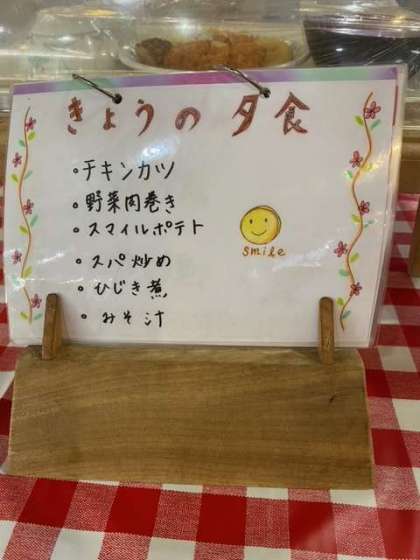 きょうの夕食
・チキンカツ
・野菜肉巻き
・スマイルポテト
smile
・スパ炒め
・ひじき煮
・みそ汁